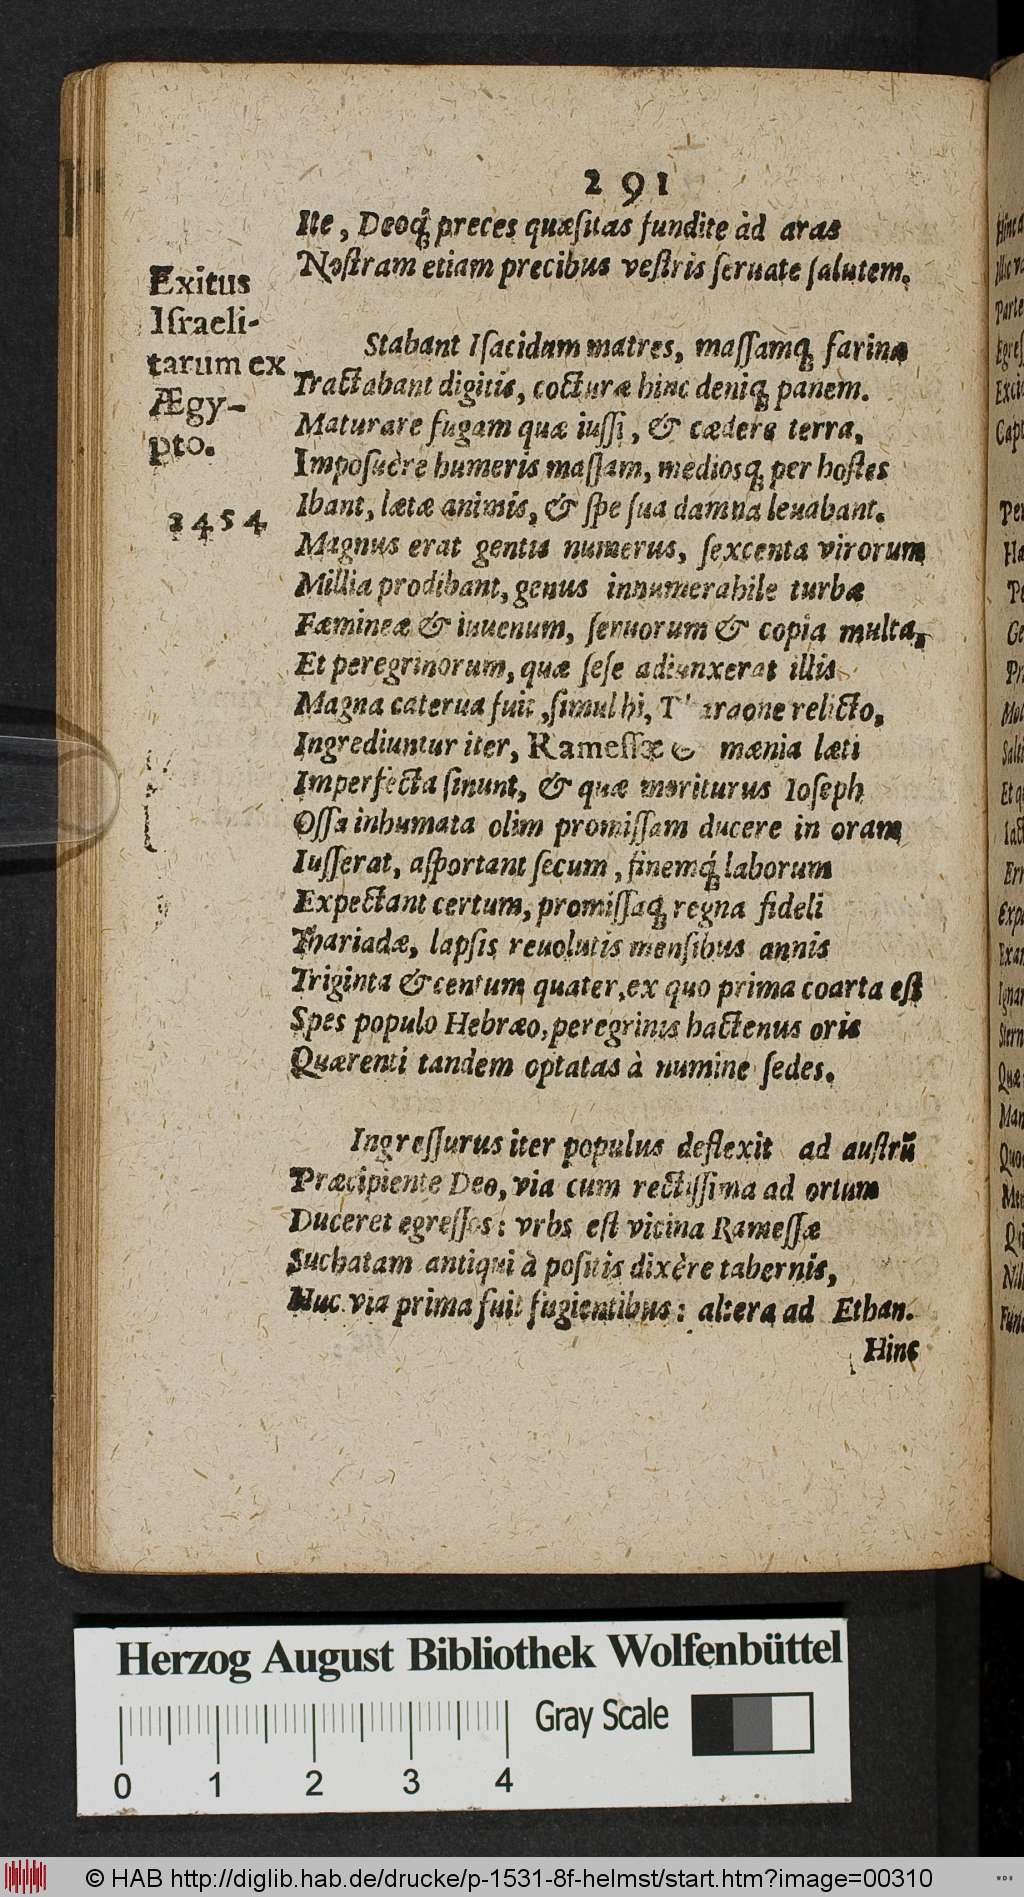 291
Ite, Deoq́; preces quæsitas fundite ad aras
Nostram etiam precibus vestris seruate salutem.
Exitus
Israeli-
tarum ex
Ægy-
pto.
2454
Stabant Isacidum matres, massamq; farinæ
Tractabant digitis, cocturæ hinc deniq; panem.
Maturare fugam quæ iussi, & cædere terra,
Imposuère humeris massam, mediosq; per hostes
Ibant, lætæ animis, & spe sua damna leuabant.
Magnus erat gentis numerus, sexcenta virorum
Millia prodibant, genus innumerabile turbæ
Fæmineæ & iuuenum, seruorum & copia multa,
Et peregrinorum, quæ sese adiunxerat illis
Magna caterua fuit, simul hi, Pharaone relicto,
Ingrediuntur iter, Ramessæ & mænia læti
Imperfecta sinunt, & quæ moriturus Ioseph
Ossa inhumata olim promissam ducere in oram
Iusserat, asportant secum, finemq́; laborum
Expectant certum, promissaq; regna fideli
Thariadæ, lapsis reuolutis mensibus annis
Triginta & centum quater, ex quo prima coarta est
Spes populo Hebræo, peregrinis hactenus oris
Quærenti tandem optatas à numine sedes.
Ingressurus iter populus deflexit ad austrũ
Præcipiente Deo, via cum rectissima ad ortum
Duceret egressos: vrbs est vicina Ramessæ
Suchatam antiqui à positis dixère tabernis,
Huc via prima fuit fugientibus: altera ad Ethan.
Hinc
Herzog August Bibliothek Wolfenbüttel
Gray Scale
0 1 2 3 4
© HAB http://diglib.hab.de/drucke/p-1531-8f-helmst/start.htm?image=00310